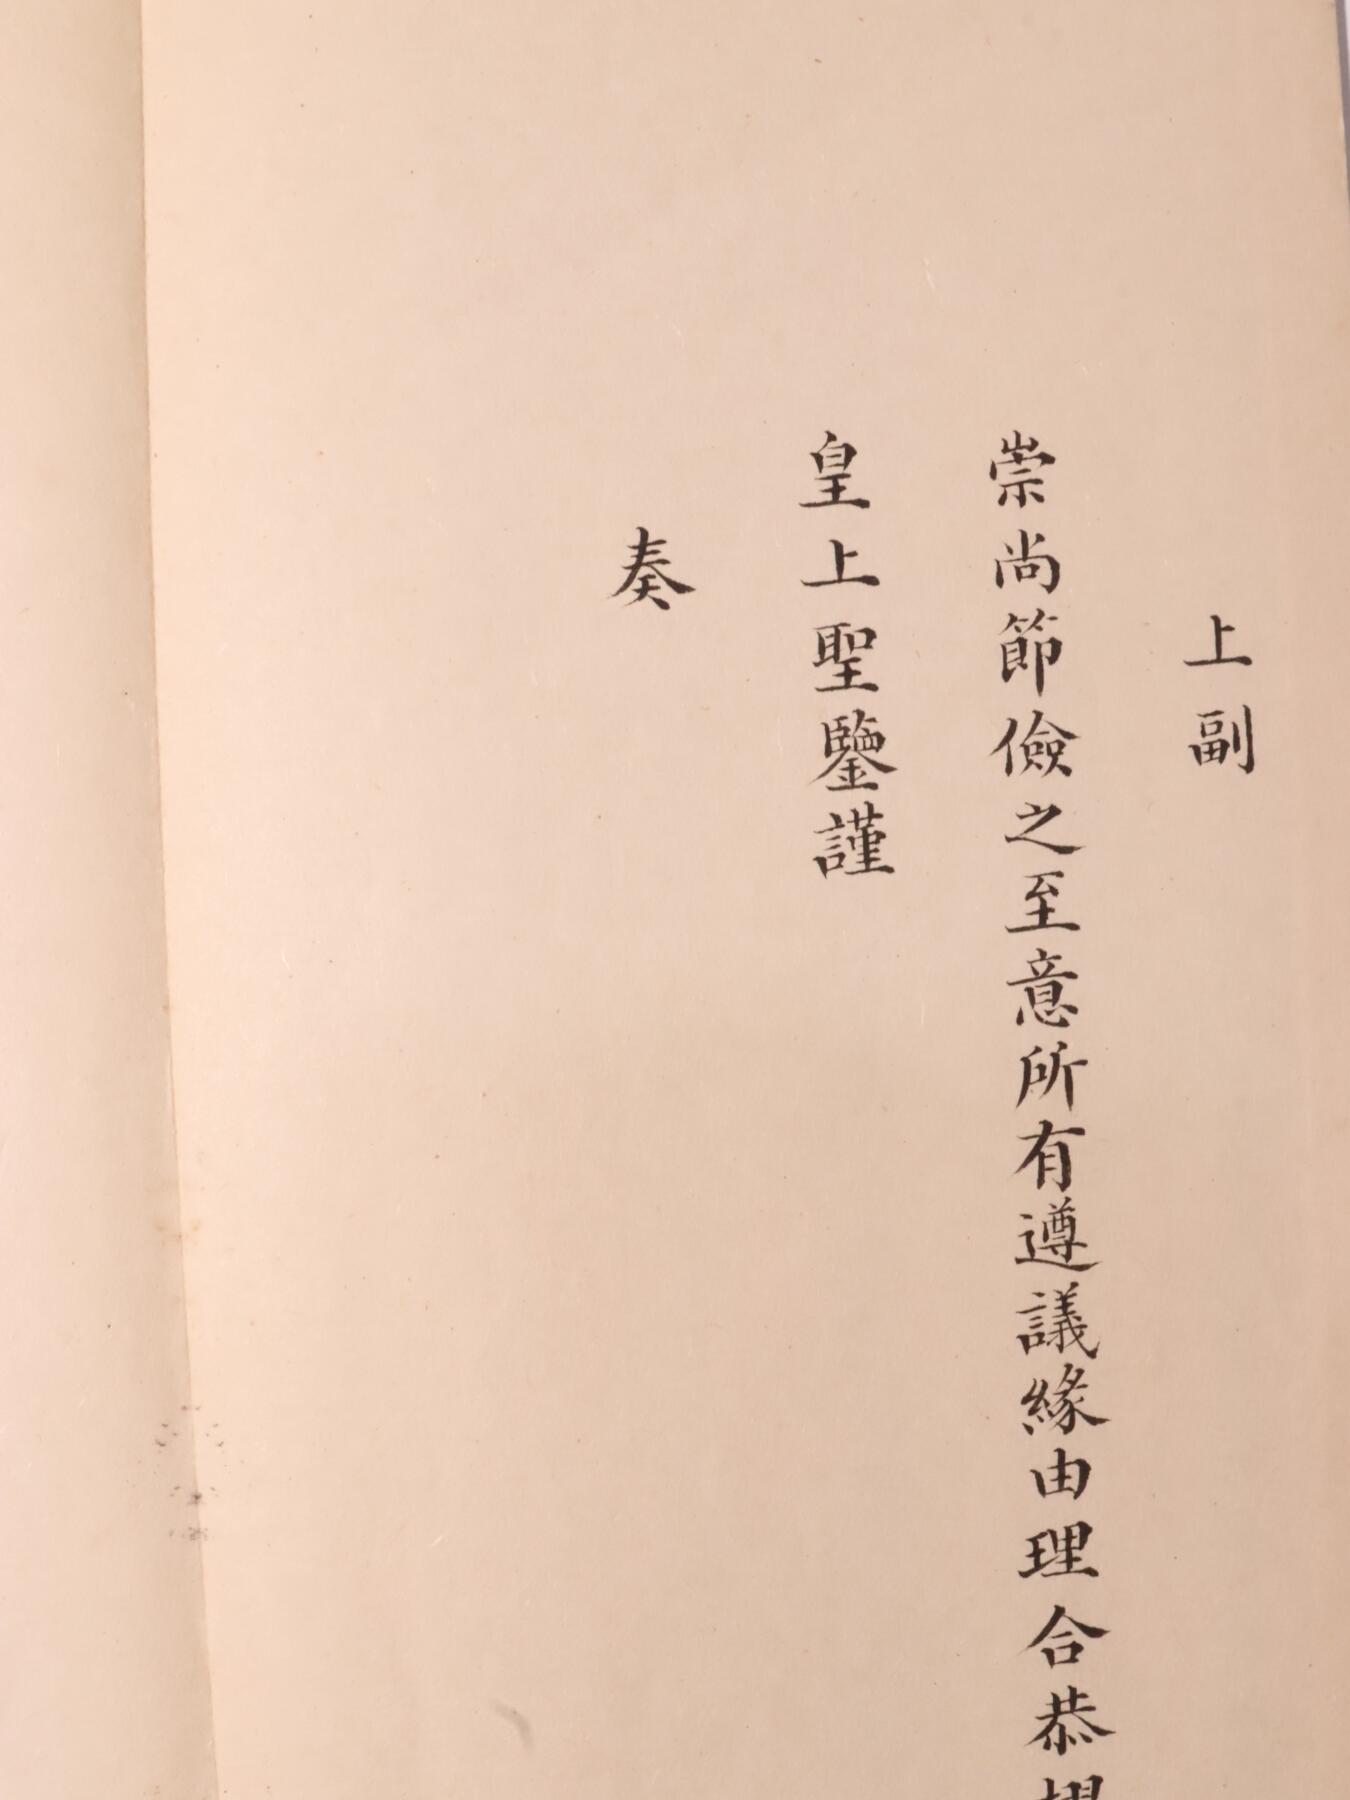 上副
崇尚節儉之至意所有遵議緣由理合恭摺
皇上聖鑒謹
奏